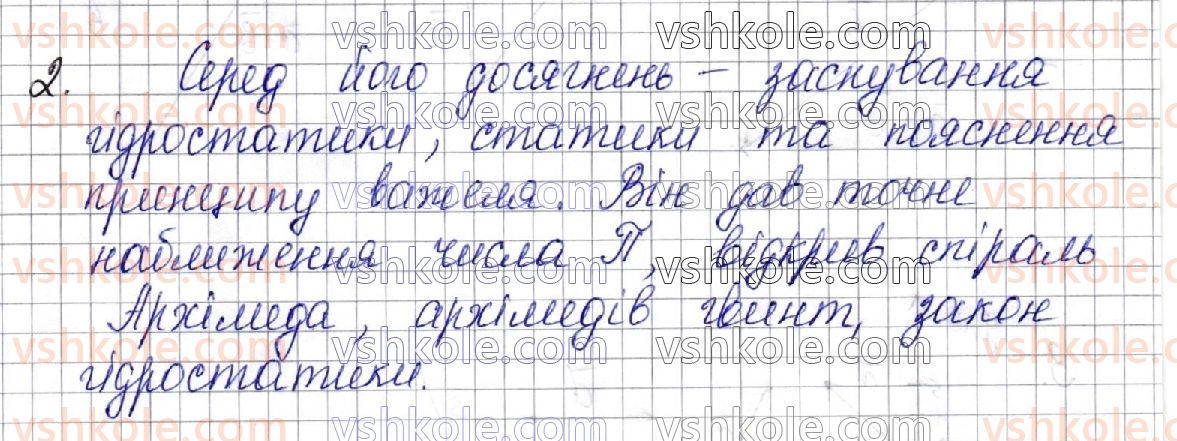 2. Серед його досягнень – заснування
гідростатики, статики та пояснення
принципу важеля. Він дав точне
наближення числа П, відкрив спіраль
Архімеда, архімедів гвинт, закон
гідростатики.
vshkole.com